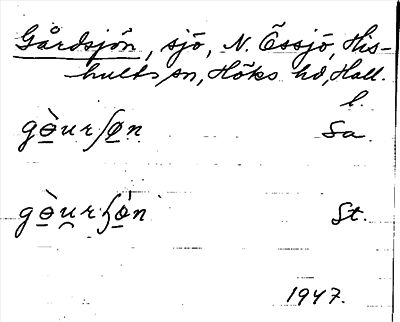 Gårdsjön, sjö, N. Össjö, His-
hults sn, Höks hd, Hall.
l.
gø̀urʃøn Sa.
gø̀u̯rʃǿn St.
1947.